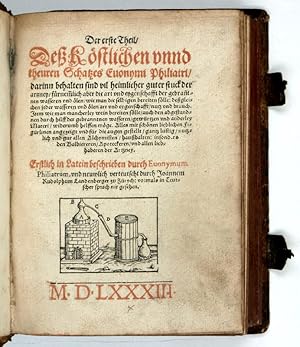 Der erste Theil/
Deß Köstlichen vnnd
theuren Schatzes Euonymi Philiatri/
darinn behalten sind vil heimlicher guter stuck der
artzney: fürnemlich aber die art vnd eygenschafft der gebrañ-
ten wasseren vnd ölen: wie man die selbigen bereiten sölle: deßglei-
chen jeder wasseren vnd ölen art vnd eygenschafft/ nutz vnd brauch.
Item wie man mancherley wein bereiten sölle: auch den abgestand-
nen durch hilff der gebrannten wasseren/ gewürtzen vnd anderley
Materi/ widerumb helffen möge. Alles mit schönen lieblichen Fi-
guren angezeigt vnd für die augen gestellt/ gantz lustig/ nutz-
lich vnd gut allen Alchymisten/ haußhaltern: insonders
den Balbiereren/ Apoteckeren/ vnd allen lieb-
haberen der Artzney.
Erstlich in Latein beschrieben durch Euonymum
Philiatrum, vnd neuwlich verteutscht durch Joannem
Rudolphum Landenberger zu Zürych: vormals in Teut-
scher sprach nie gesehen.
M. D. LXXXIII.